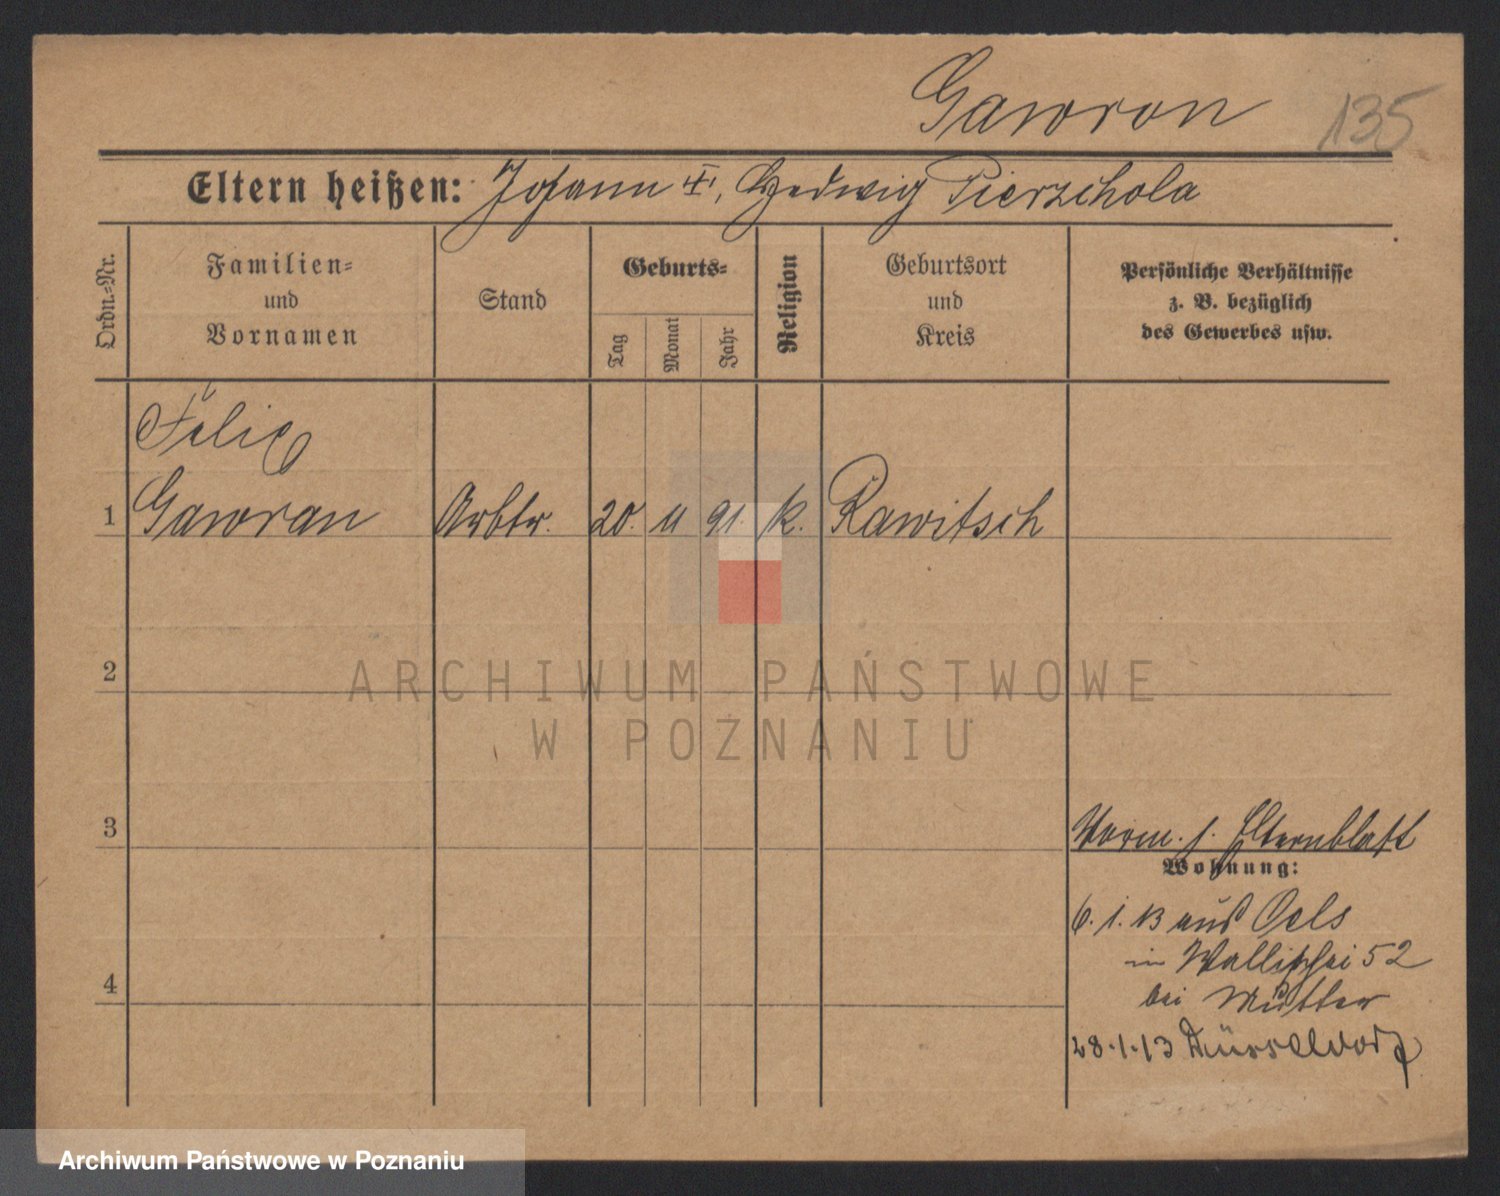 Gawron 135
Eltern heißen: Johann ‡, Hedwig Pierzchola
Ordn.-Nr.
Familien-
und
Vornamen
Stand
Geburts-
Tag
Monat
Jahr
Religion
Geburtsort
und
Kreis
Persönliche Verhältnisse
z. B. bezüglich
des Gewerbes usw.
Felix
1 Gawron Arbtr. 20. 11 91. k. Rawitsch
2
ARCHIWUM PAŃSTWOWE
W POZNANIU
3
Vorm. s. Elternblatt
Wohnung:
6. 1. 13 aus Oels
in Wallischei 52
4
bei Mutter
28.1.13 Düsseldorf
Archiwum Państwowe w Poznaniu